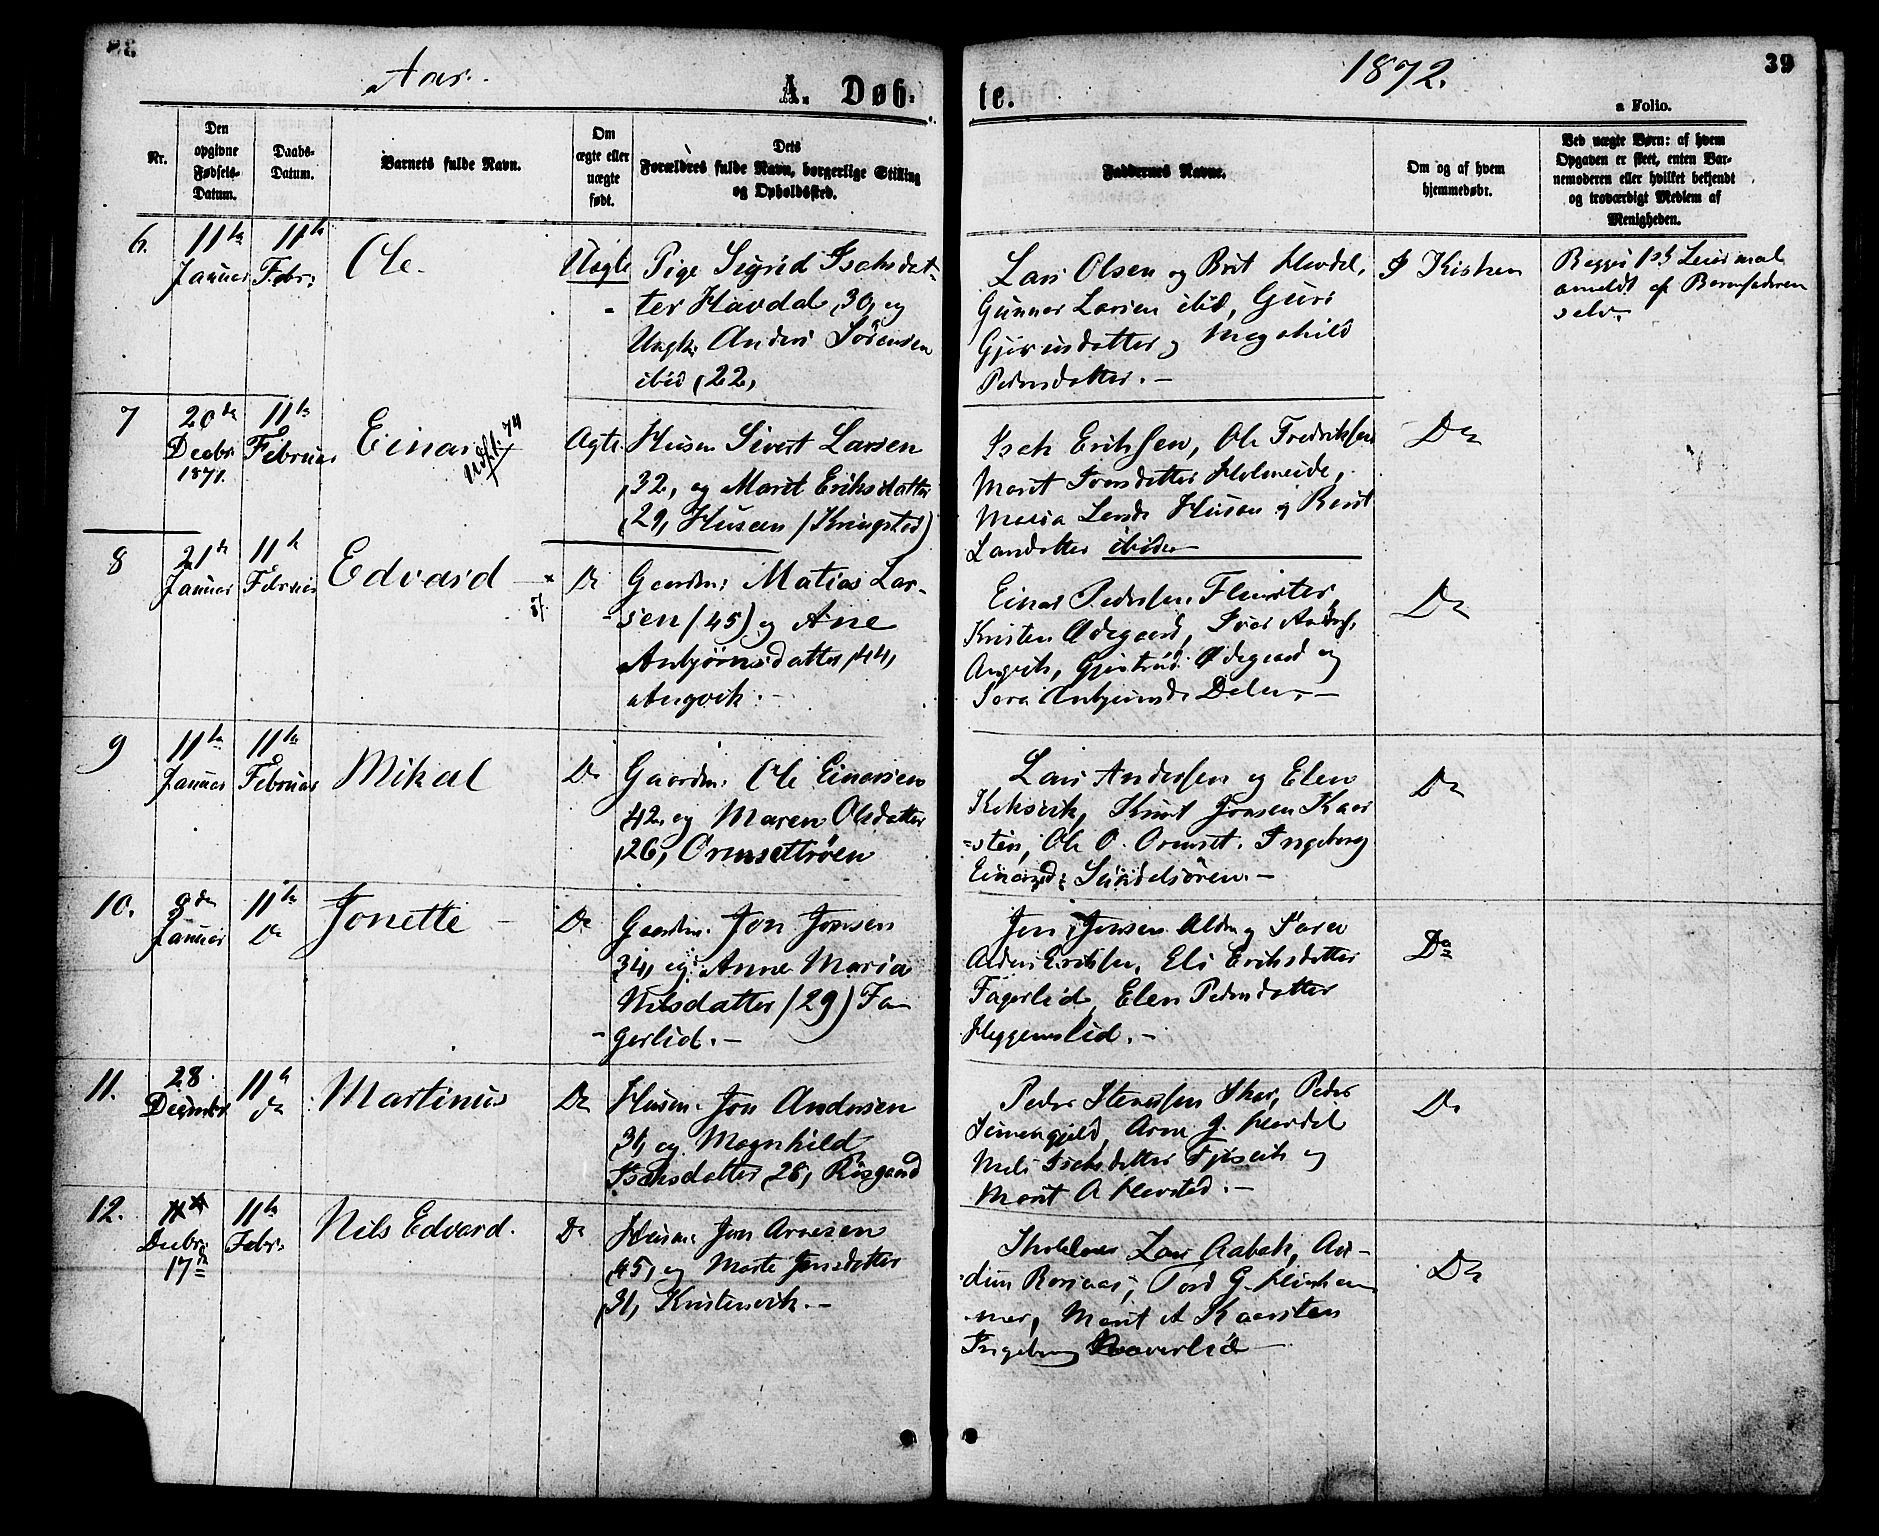 Aar.
1872.
39
A. Døb-
te.
a Folio.
Nr.
Den
opgivne
Fødsels-
Datum.
Daabs-
Datum.
Barnets fulde Navn.
Om
ægte eller
uægte
født.
Dets
Forældres fulde Navn, borgerlige Stilling
og Opholdssted.
Faddernes Navne.
Om og af hvem
hjemmedøbt.
Ved uægte Børn: af hvem
Opgaven er skeet, enten Bar-
nemoderen eller hvilket bekjendt
og troværdigt Medlem af
Menigheden.
6.
11te
Januar
11te
Febr:
Ole.
Uægte
Pige Sigrid Isaksdat-
ter Havdal, 30, og
Ungk: Anders Sörensen
ibid, 22,
Lars Olsen og Brit Hevdal,
Gunner Larsen ibid, Guri
Gjertrusdatter og Magnhild
Pedersdatter. -
I Kirken
Begges 1ste Leiermaal
anmeldt af Barnefaderen
selv.
7
20de
Decbr
1871.
11te
Februar
Einar
Udfl. 74
Ægte
Husm Sivert Larsen
,32, og Marit Eriksdatter
,29, Husan (Kringstad)
Isak Eriksen, Ole Fredriksen
Marit Iversdatter Holmeide,
Maria Larsd: Husan og Beret
Larsdatter ibidm
Do
8
21de
Januar
11te
Februar
Edvard
Do
Gaardm: Matias Lar-
sen (45) og Ane
Anbjørnsdatter, 44,
Angvik. -
Einar Pedersen Flemsæter,
Kristen Ødegaard, Iver Anders.
Angvik, Gjertrud Ødegaard og
Sara Anbjørnsd: Dalen. -
Do
9
11te
Januar
11te
Februar
Mikal
Do
Gaardm: Ole Einarsen
,42, og Maren Olsdatter
,26, Ormsettrøen
Lars Andersen og Elen
Koksvik, Knut Jonsen Kaar
-sten, Ole O. Ormset. Ingeborg
Einarsd: Sandelsøren. -
Do
10.
8de
Januar
11te
Do
Jonette
Do
Gaardm. Jon Jonsen
34, og Anne Maria
Nilsdatter (29) Fa-
gerlid. -
Jon Jonsen Alden og Sara
Anders Eriksen, Eli Eriksdatter
Fagerlid, Elen Pedersdatter
Heggemslid. -
Do
11.
28
Decembr
11te
do
Martinus
Do
Husm. Jon Andersen
,31, og Magnhild
Isaksdatter, 28, Rösgaard
Peder
Simengjeld, Arne J. Hevdal
Isaksdatter og
Marit A. Hevsted. -
Do
12.
Decbr:
17de
11te
Febr:
Nils Edvard.
Do
Husm: Jon Arnesen
,45, og Marte Jonsdatter
,31, Kristensvik. -
Lars Aabak, Au-
dun Torsd G.
mer, Marit A. Kaarsten
Ingeborg
Do